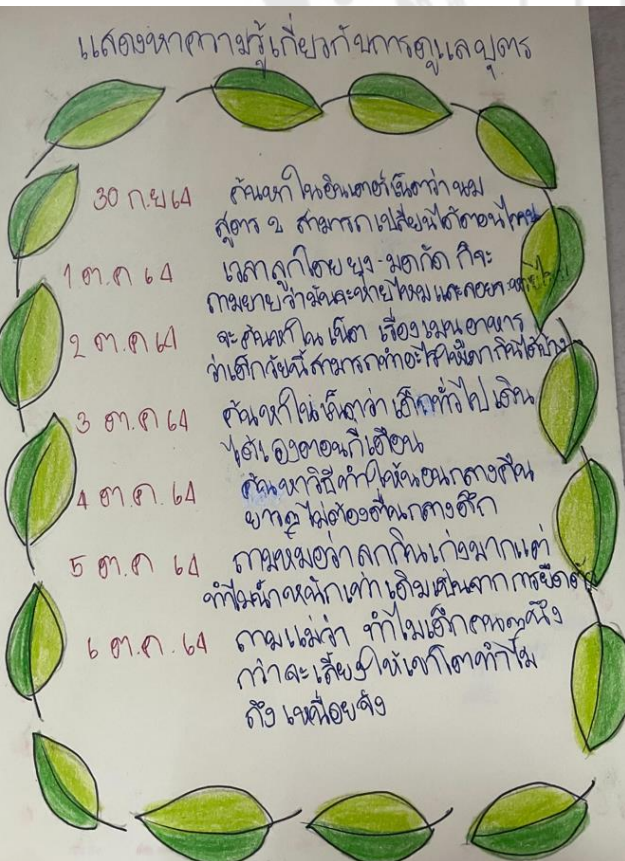 แสดงหาความรู้เกี่ยวกับการดูแลบุตร
30 ก.ย 64 ค้นหาในอินเตอร์เน็ตว่านม
สูตร 2 สามารถเปลี่ยนได้ตอนไหน
1 ต.ค 64 เวลาลูกโดยยุง-มดกัด ก็จะ
ถามยายว่ามันจะหายไหมและ
2 ต.ค 64 จะค้นหาในเน็ต เรื่องเมนูอาหาร
ว่าเด็กวัยนี้สามารถทำอะไรให้เขากินได้บ้าง
3 ต.ค 64 ค้นหาในเน็ตว่า เด็กทั่วไปเดิน
ได้เองตอนกี่เดือน
4 ต.ค. 64 ค้นหาวิธีทำให้นอนกลางคืน
ยาวๆไม่ต้องตื่นกลางดึก
5 ต.ค 64 ถามหมอว่า ลูกกินเก่งมากแต่
ทำไมน้ำหนักเท่าเดิมเป็นจากการยืดตัว
6 ต.ค. 64 ถามแม่ว่า ทำไมเด็กคนๆหนึ่ง
กว่าจะเลี้ยงให้เขาโตทำไม
ถึง เหนื่อยจัง